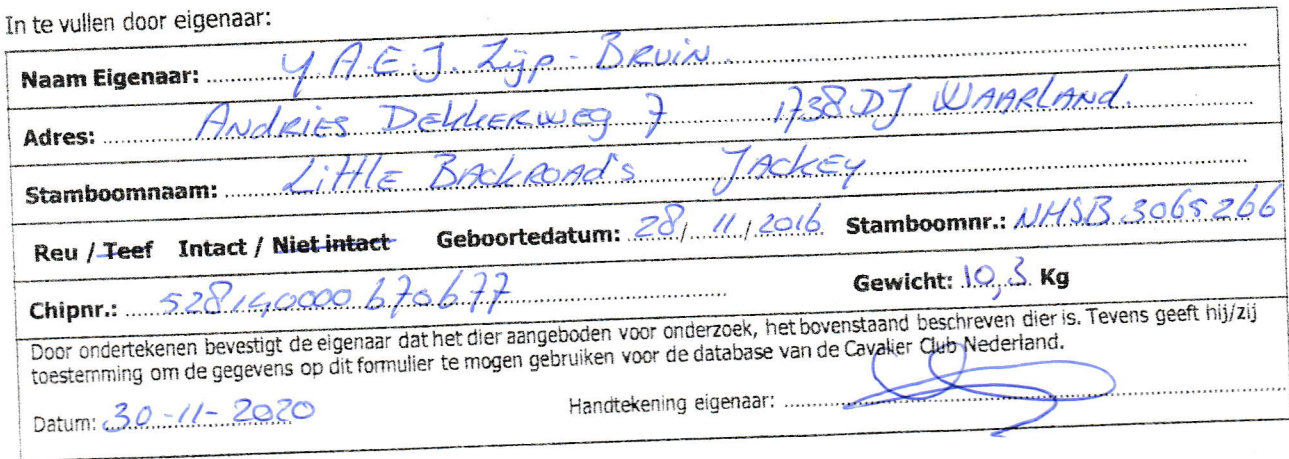 In te vullen door eigenaar:
Naam Eigenaar: Y.A.E.J. Zijp - Bruin.
Adres: Andries Dekkerweg 7 1738 DJ Waarland.
Stamboomnaam: Little Backroad's Jackey
Reu / Teef Intact / Niet intact Geboortedatum: 28 / 11 / 2016 Stamboomnr.: NHSB 3065266
Chipnr.: 528140000670677 Gewicht: 10,3 Kg
Door ondertekenen bevestigt de eigenaar dat het dier aangeboden voor onderzoek, het bovenstaand beschreven dier is. Tevens geeft hij/zij
toestemming om de gegevens op dit formulier te mogen gebruiken voor de database van de Cavalier Club Nederland.
Datum: 30-11-2020 Handtekening eigenaar: